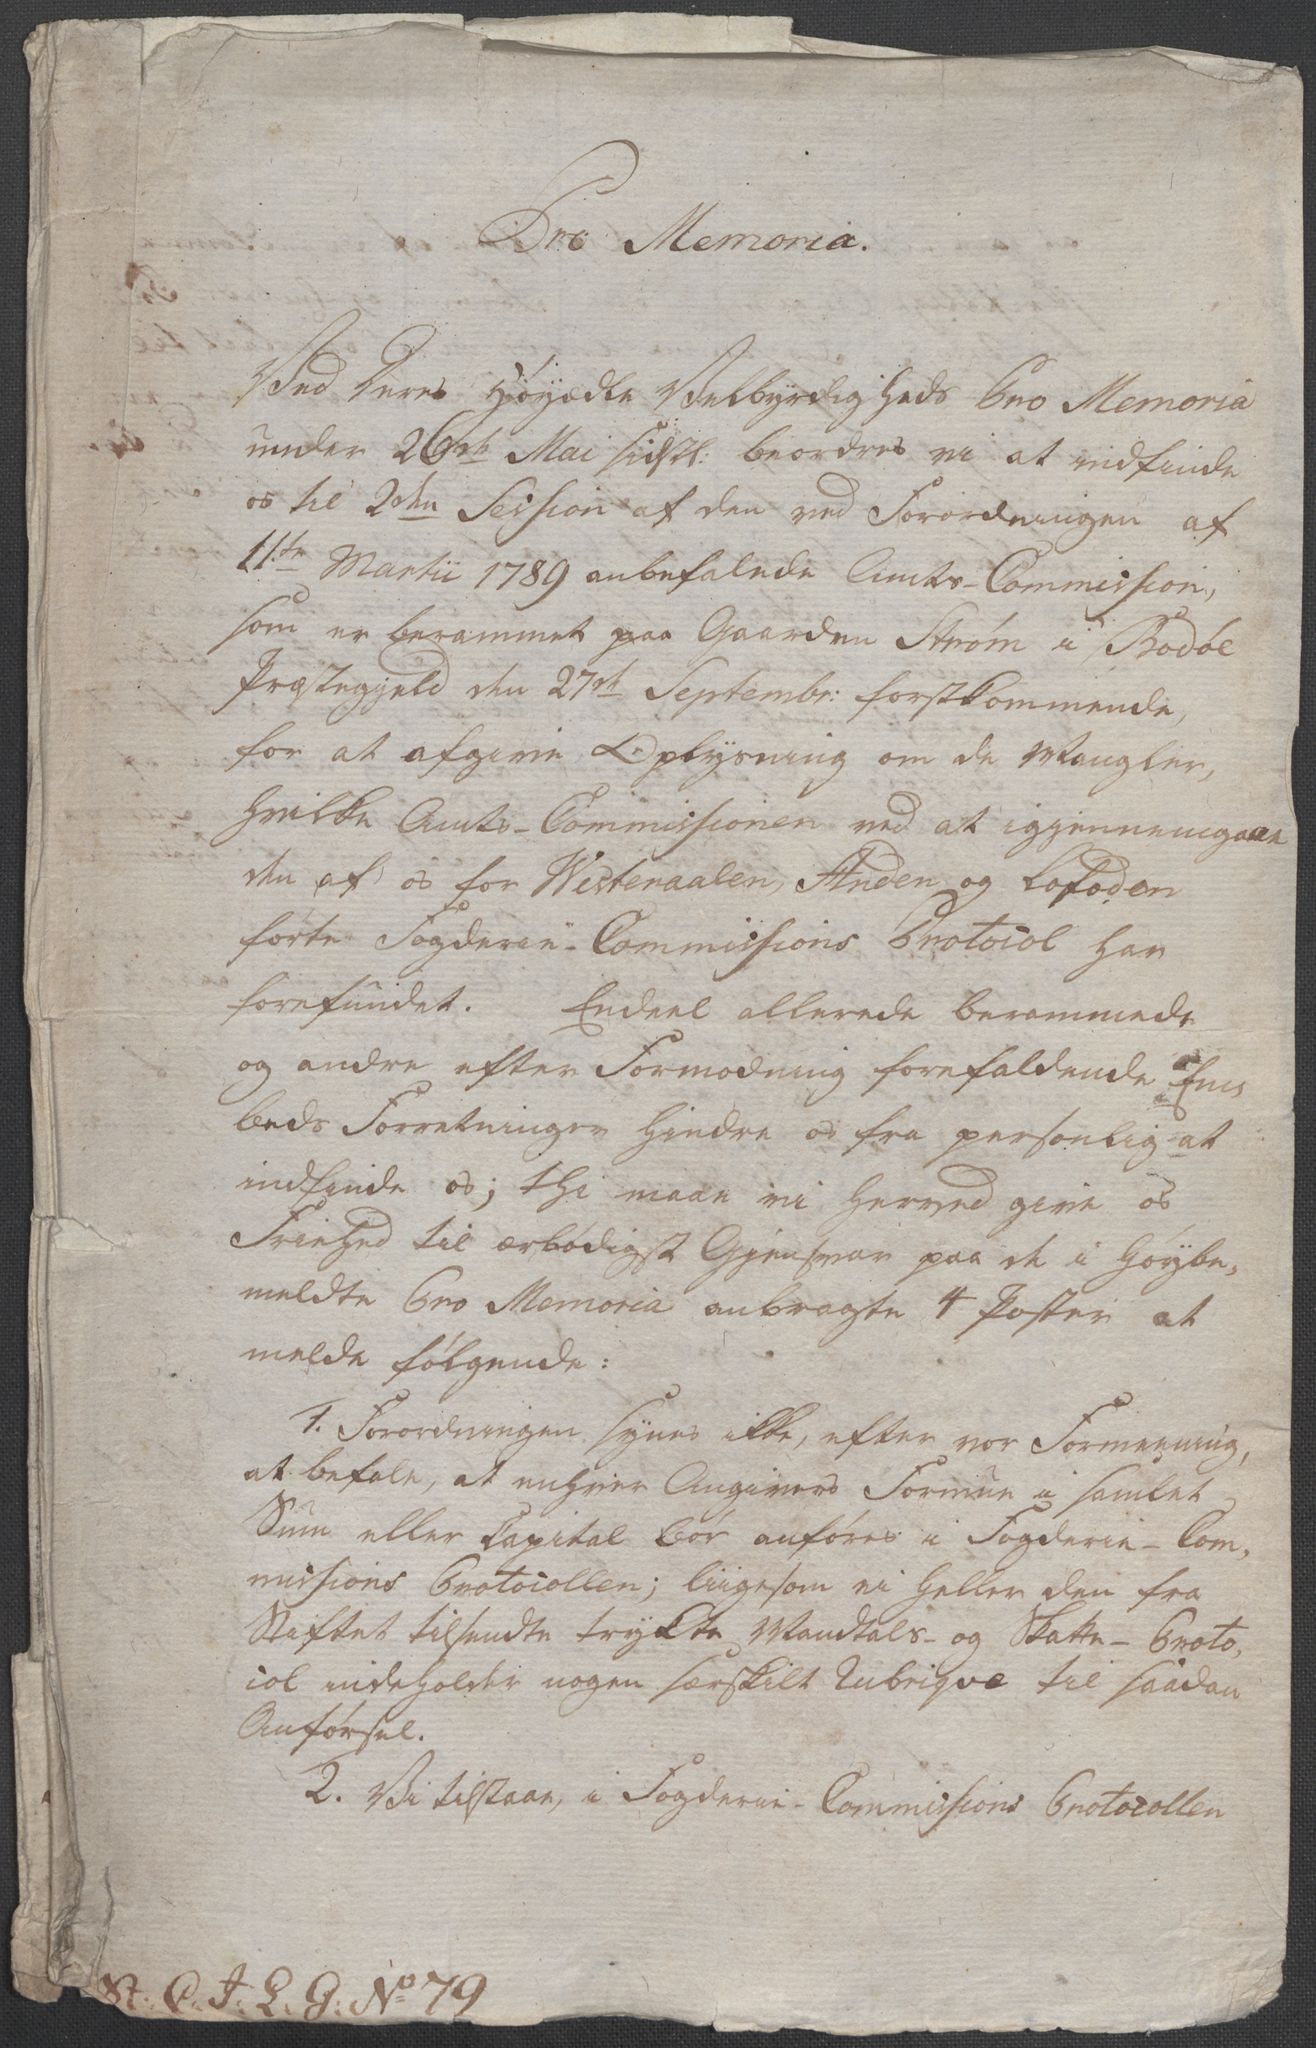 Pro Memoria.
Ved Deres Høyædle Velbyrdigheds Pro Memoria
under 26de Mai sidstl: beordres vi at indfinde
os til 2den Session af den ved Forordningen af
11te Martii 1789 anbefalede Amts-Commission,
som er berammet paa Gaarden Strøm i Bodøe
Præstegjeld den 27de Septembr: førstkommende,
for at afgive Oplysning om de Mangler,
hvilke Amts-Commissionen ved at igjennemgaae
den af os for Westeraalen, Anden og Lofoden
førte Fogderie-Commissions Protocol har
forefundet. Endeel allerede berammede
og andre efter Formodning forefaldende Em-
beds Forretninger hindre os fra personlig at
indfinde os; thi maae vi herved give os
Friehed til ærbødigst Gjensvar paa de i høybe-
meldte Pro Memoria anbragte 4 Poster at
melde følgende:
1. Forordningen synes ikke, efter vor Formeening,
at befale, at enhver Angivers Formue i samlet
Sum eller Capital bør anføres i Fogderie-Com-
missions Protocollen; liigesom ei heller den fra
Stiftet tilsendte trykte Mandtals- og Skatte-Proto-
col indeholder nogen særskilt Rubriqve til saadan
Anførsel.
2. Vi tilstaae, i Fogderie-Commissions Protocollen
St. C. J. L. G. No 79